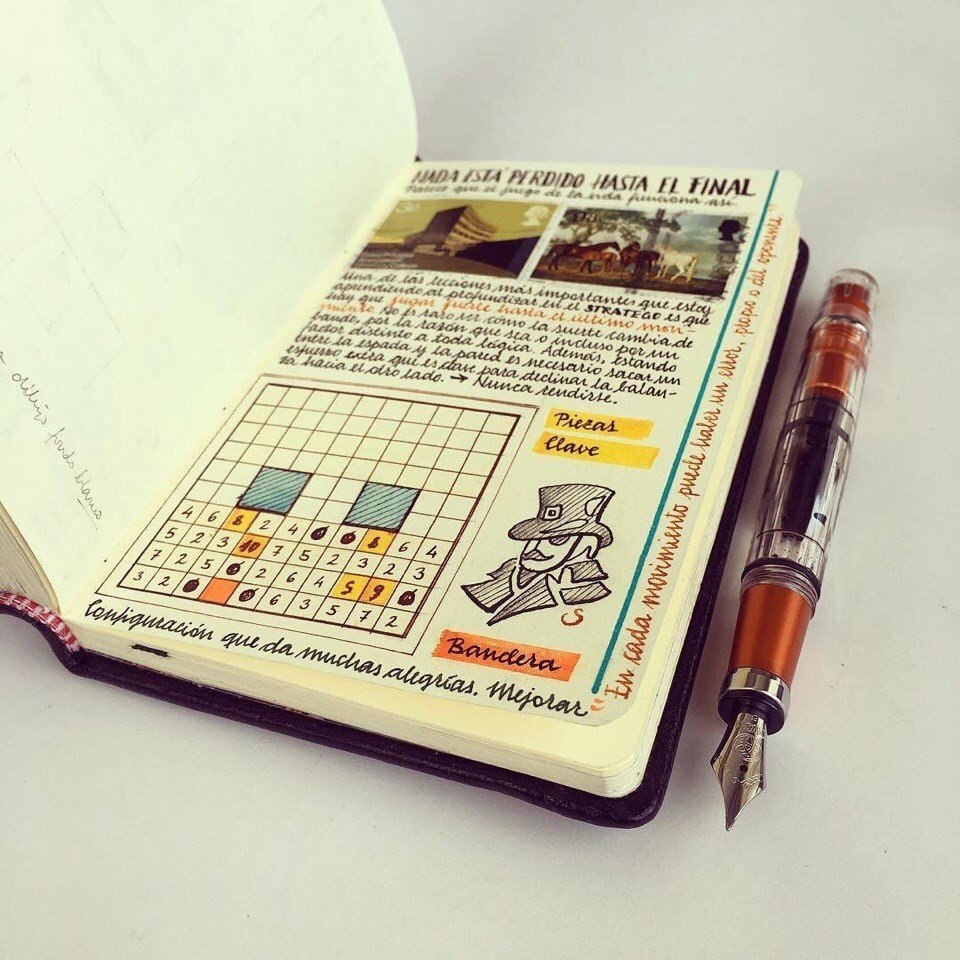 NADA ESTÁ PERDIDO HASTA EL FINAL
Parece que el juego de la vida funciona así.
Una de las lecciones más importantes que estoy
aprendiendo al profundizar en el STRATEGO es que
hay que jugar fuerte hasta el último movi-
miento. No es raro ver cómo la suerte cambia de
bando, por la razón que sea o incluso por un
factor distinto a toda lógica. Además, estando
entre la espada y la pared es necesario sacar un
esfuerzo extra que es clave para declinar la balan-
za hacia el otro lado. → Nunca rendirse.
Piezas
Clave
4 6 8 2 4 8 6 4
7 5 2 3 10 2 3
7 2 5 7 2 6 4 5 9
3 2 6 4 3 5 7 2
S
Bandera
Configuración que da muchas alegrías. Mejorar
"En cada movimiento puede haber un error, propio o del oponente"
dibujo fondo blanco